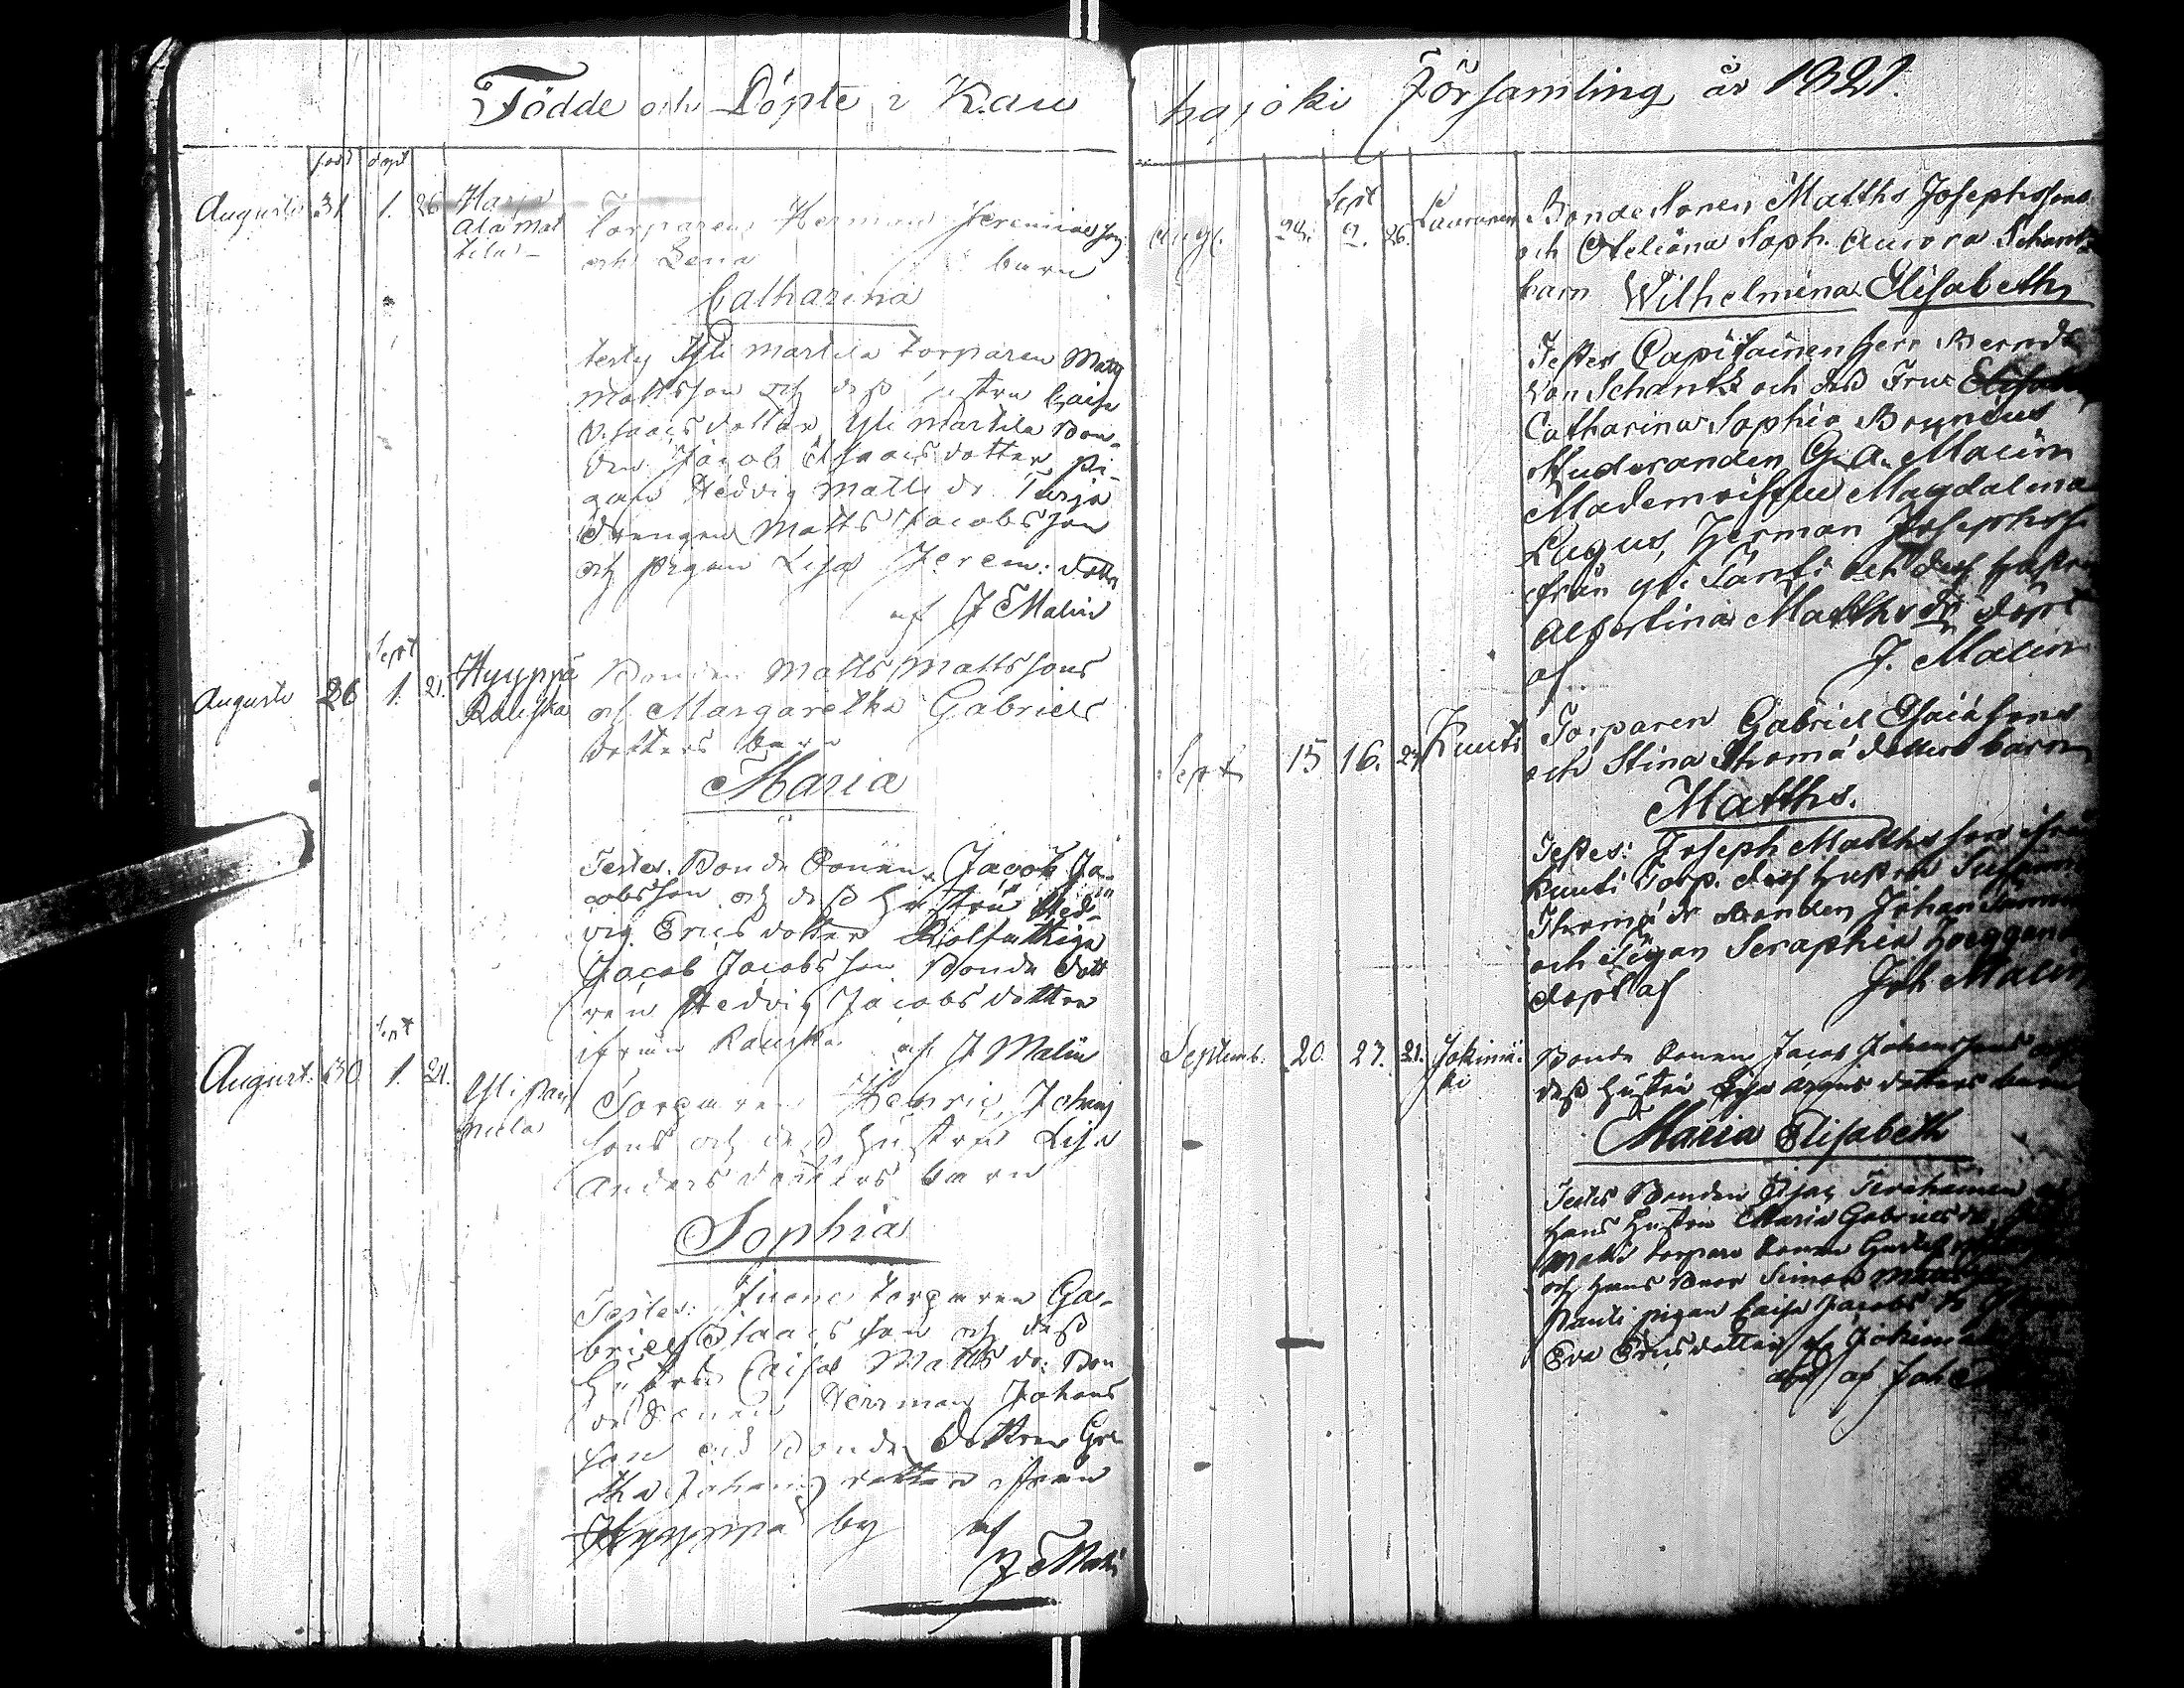 Födde och Döpte i Kau
född döpt
Augusti 31 1. 26 Harja
Ala Mat
tila
Torparen Herman Jeremiæ son
och Lena barn
Catharina
testes Yli martila torparen Matts
Mattsson och dess hustru Caisa
Isaacsdotter Yli Martila Bon-
den Jacob Isaacsdotter, Pi-
gan Hedvig Matts dr.
Drengen Matts Jacobsson
och pigan Lisa Jerem: dotter
af J Malin
Sept
Augusti 26 1. 21. Hyyppä
Rauska
Bonden Matts Mattssons
och Margaretha Gabriels
dotters barn
Maria
Testes. Bonde Sonen Jacob Ja-
cobsson och dess hustru Hed-
vig Ericsdotter
Jacob Jacobsson Bonde dott
ren Hedvig Jacobsdotter
ifrån Rauska af J Malin
Sept
August. 30 1. 21. Yli Pan
nula
Torparen Henric Johans
sons och dess hustru Lisa
Anders dotters barn
Sophia
Testes: torparen Ga-
briel Isaacsson och dess
hustru Caisa Matts dr. Bon
de Sonen Herrman Johans
son och Bonde dottren Gre
tha Johans dotter ifrån
Hyyppä by af
J Malin
hajoki Församling år 1821.
Sept
Aug. 29. 2. 26. Lauronen
Bonde Sonen Matths Josephssons
och Soph. Aurora Schantz
barn Wilhelmina Elisabeth
Testes Capitainen Herr Berndt
von Schantz och dess Fru Elisabeth
Catharina Sophia Bryneius
Studeranden G. A. Malin
Mademoiselle Magdalena
Lagus, Herman Josephss.
från yli och dess hustru
Albertina Matths dr döpt
af J. Malin
Sept 15 16. 24 Knuuti
Torparen Gabriel Esaiæsons
och Stina Thomæ dotters barn
Matths.
Testes: Joseph Matthsson ifrån
Knuuti Torp. dess hustru Susanna
Thomæ dr Bonden Johan
och Pigan Seraphia
döpt af Joh Malin
Septemb. 20. 27. 21. Jokimä-
ki
Bonde Sonen Jacob Johanssons och
dess hustru Lisa dotters barn
Maria Elisabeth
Testes Bonden Isac
Hans hustru Maria Gabriels dr,
Matts torpare Sonen Gustaf
och Hans Broder Simon
Pauti pigan Caisa Jacobs dr
Eva Ericsdotter af Jokimäki
af Joh